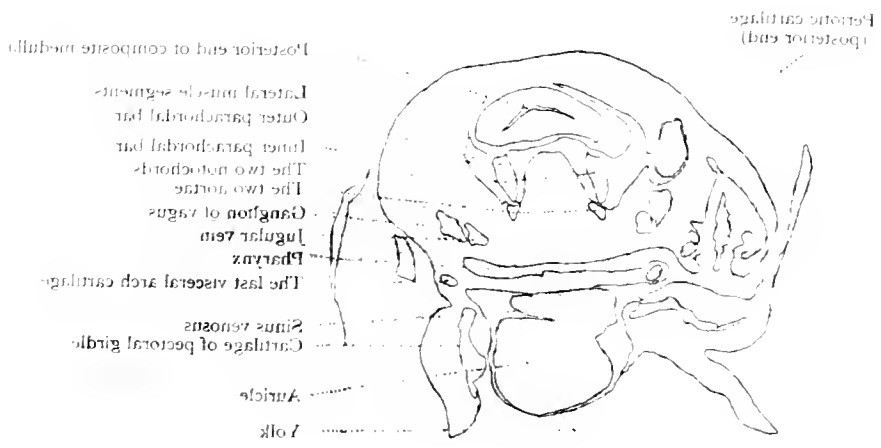 Periotic cartilage
(posterior end)
Posterior end of composite medulla
Lateral muscle segments
Outer parachordal bar
Inner parachordal bar
The two notochords
The two aortae
Ganglion of vagus
Jugular vein
Pharynx
The last visceral arch cartilage
Sinus venosus
Cartilage of pectoral girdle
Auricle
Yolk